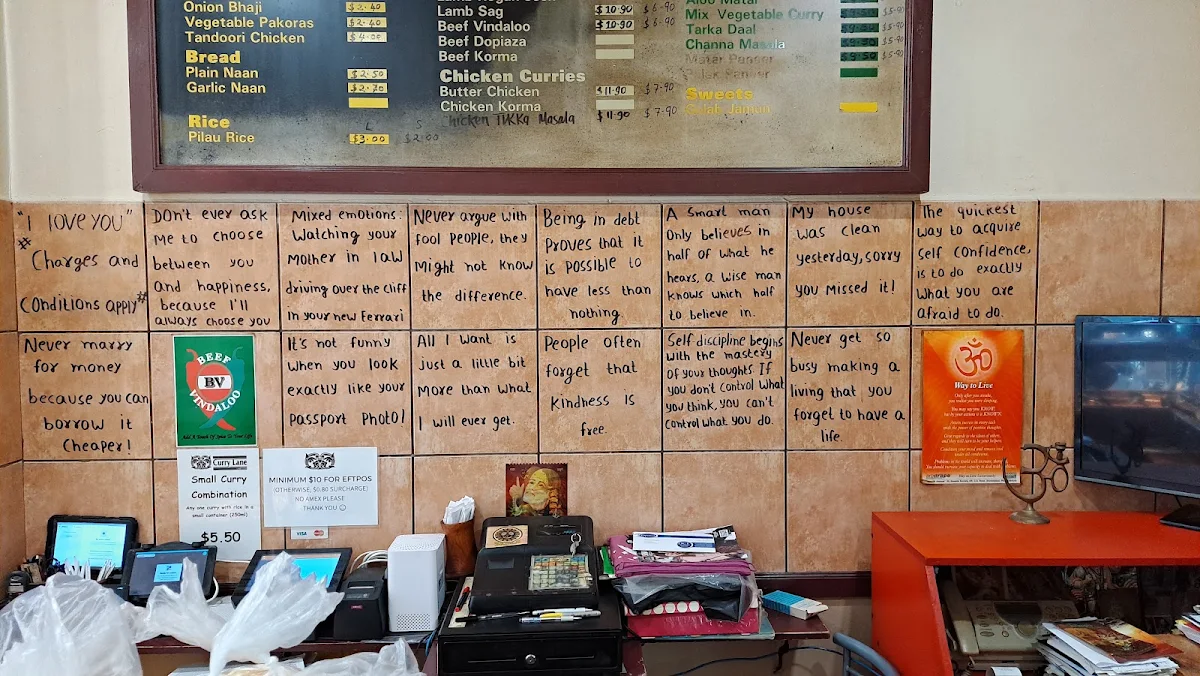 Onion Bhaji $2.40
Vegetable Pakoras $2.40
Tandoori Chicken $4.00
Bread
Plain Naan $2.50
Garlic Naan $2.70
Rice L S
Pilau Rice $3.00 $2.00
Lamb Sag $10.90 $6.90
Beef Vindaloo $10.90 $6.90
Beef Dopiaza
Beef Korma
Chicken Curries
Butter Chicken $11.90 $7.90
Chicken Korma
Chicken Tikka Masala $11.90 $7.90
Aloo Matar
Mix Vegetable Curry $5.90
Tarka Daal $9.50 $5.90
Channa Masala $9.50 $5.90
Matar Paneer $9.50 $5.90
Palak Paneer
Sweets
Gulab Jamun
"I love you"
# Charges and
conditions apply#
Don't ever ask
me to choose
between you
and happiness,
because I'll
always choose you
Mixed emotions:
Watching your
Mother in law
driving over the cliff
in your new Ferrari
Never argue with
fool people, they
Might not know
the difference.
Being in debt
proves that it
is possible to
have less than
nothing.
A smart man
Only believes in
half of what he
hears, a wise man
knows which half
to believe in.
My house
was clean
yesterday, sorry
you missed it!
The quickest
way to acquire
self confidence,
is to do exactly
what you are
afraid to do.
Never marry
for money
because you can
borrow it
Cheaper!
BEEF
BV
VINDALOO
Add A Touch Of Spice To Your Life
It's not funny
when you look
exactly like your
passport photo!
All I want is
just a little bit
more than what
I will ever get.
People often
forget that
kindness is
free.
Self discipline begins
with the mastery
of your thoughts. If
you don't control what
you think, you can't
control what you do.
Never get so
busy making a
living that you
forget to have a
life.
ॐ
Way to Live
Curry Lane
Small Curry
Combination
Any one curry with rice in a
small container (250ml)
$5.50
MINIMUM $10 FOR EFTPOS
(OTHERWISE, $0.80 SURCHARGE)
NO AMEX PLEASE
THANK YOU ☺
VISA